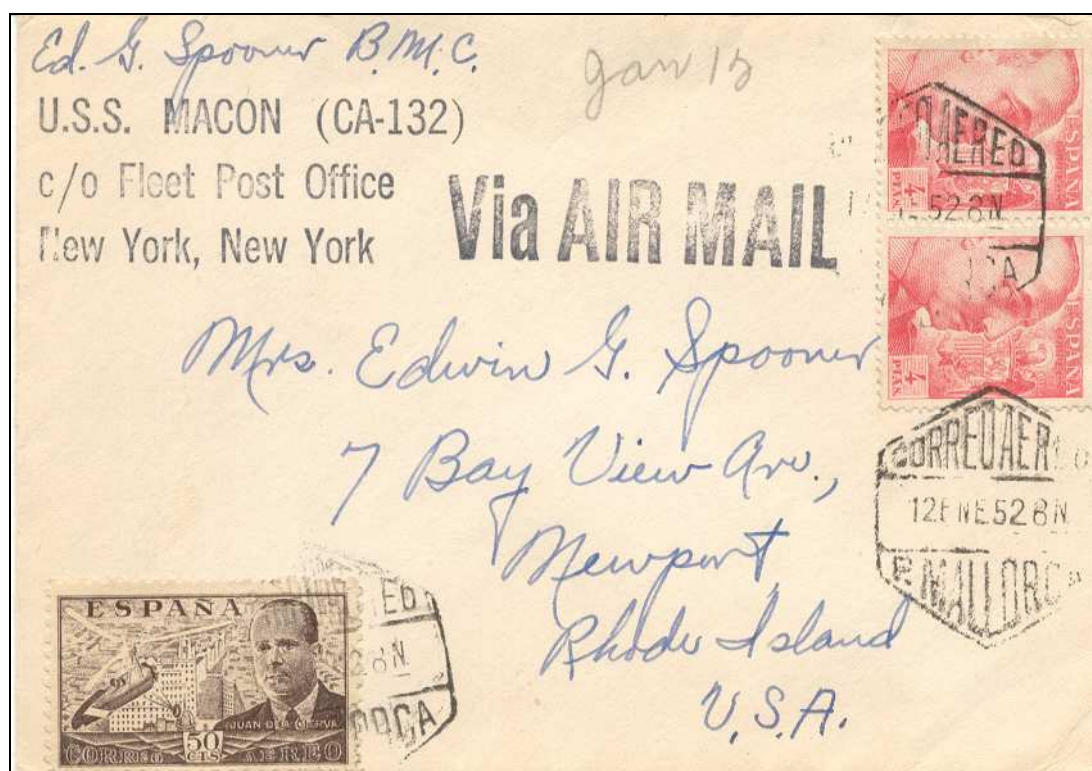 Ed. G. Spooner B.M.C.
Jan 15
U.S.S. MACON (CA-132)
c/o Fleet Post Office
New York, New York
Via AIR MAIL
Mrs. Edwin G. Spooner
7 Bay View Ave.,
Newport
Rhode Island
U.S.A.
ESPAÑA
4
PTAS
AEREO
528N
ESPAÑA
4
PTAS
CORREO AEREO
12ENE528N
P. MALLORCA
ESPAÑA
JUAN DE LA CIERVA
50
CTS
CORREO AEREO